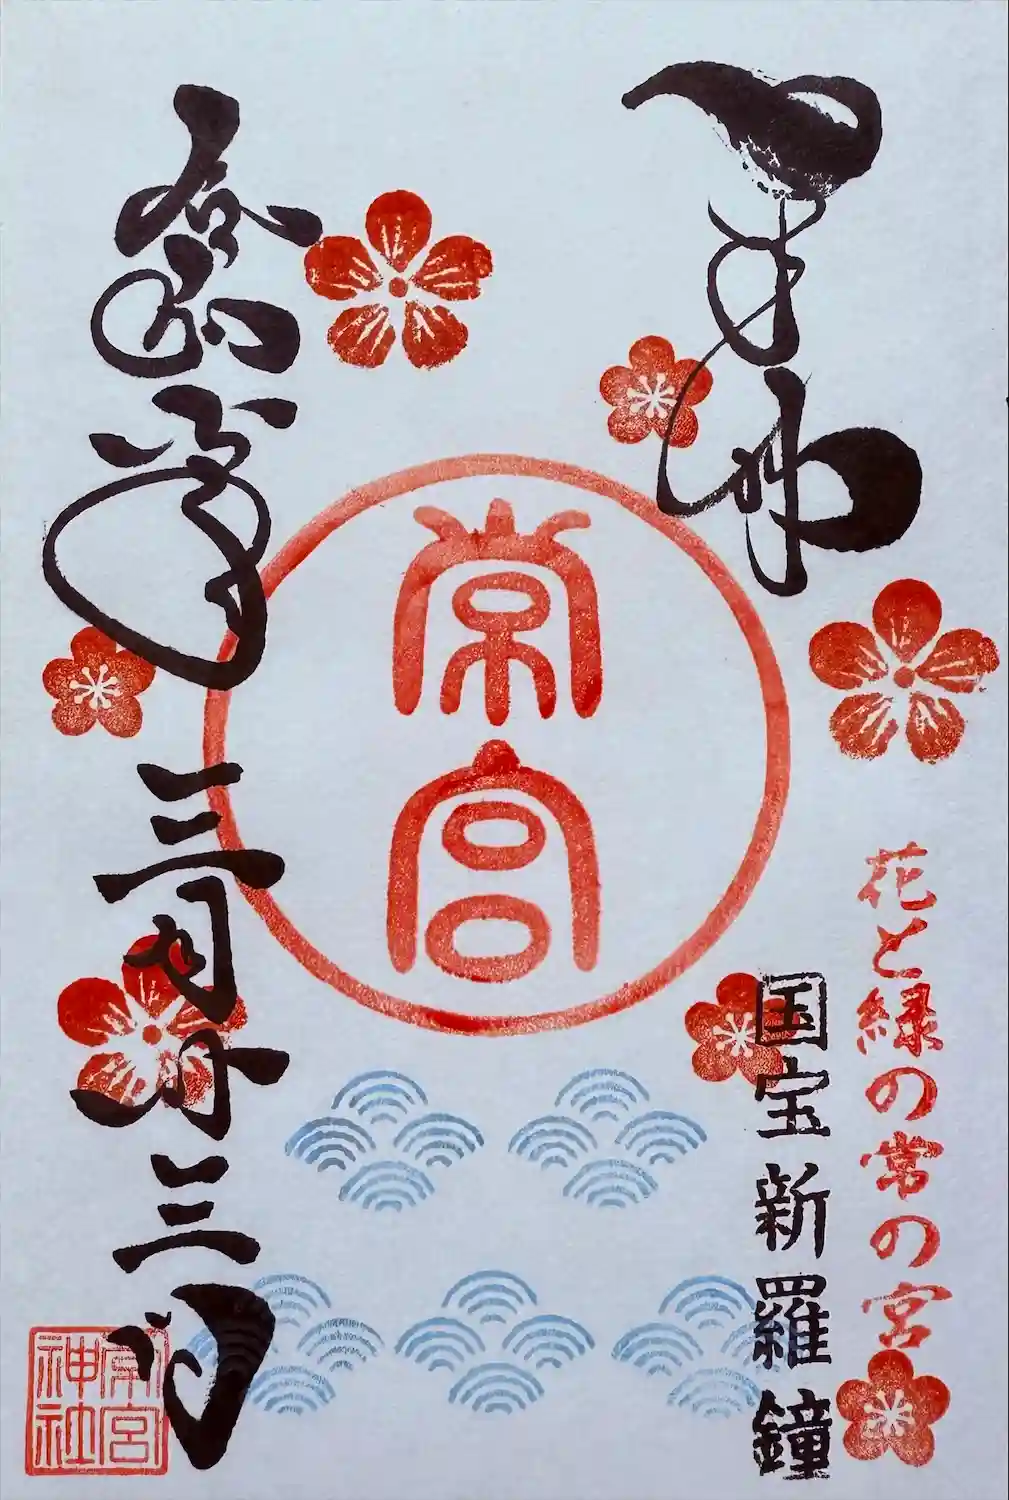 奉拝
花と緑の常の宮
国宝新羅鐘
常宮
令和
年
三月十三日
常宮
神社